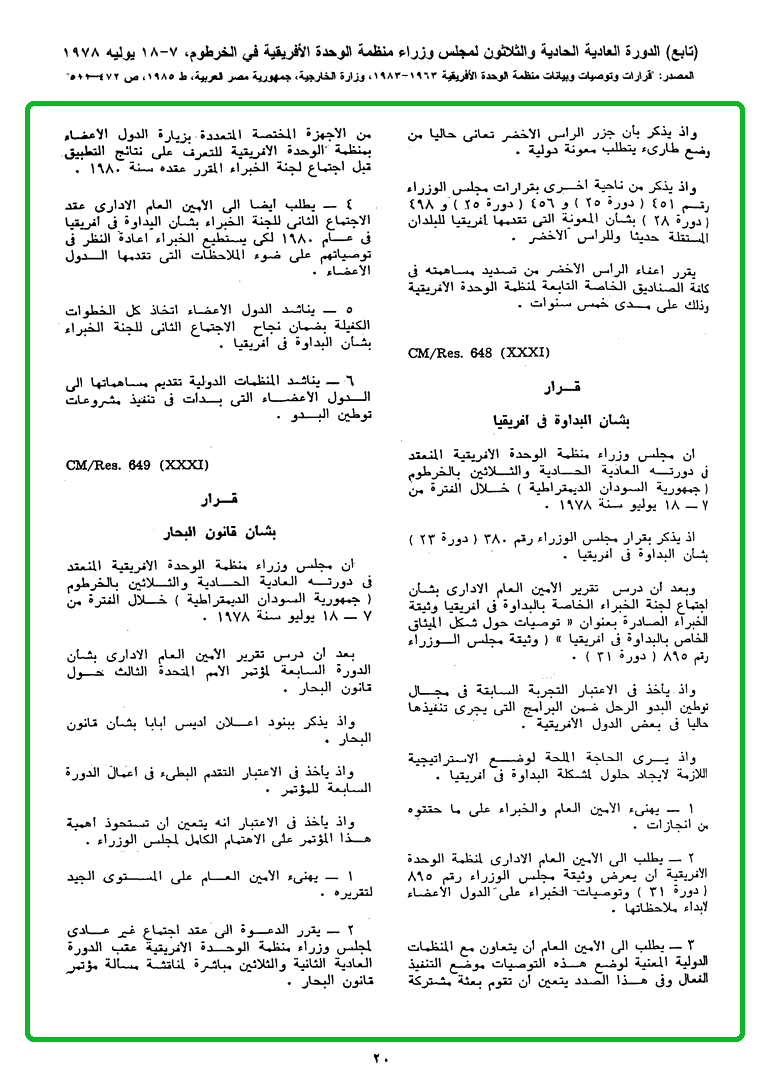 (تابع) الدورة العادية الحادية والثلاثون لمجلس وزراء منظمة الوحدة الأفريقية في الخرطوم، ٧-١٨ يوليه ١٩٧٨
المصدر: "قرارات وتوصيات وبيانات منظمة الوحدة الأفريقية ١٩٦٣-١٩٨٣، وزارة الخارجية، جمهورية مصر العربية، ط ١٩٨٥، ص ٤٧٢-٥٠٠"
واذ يذكر بأن جزر الراس الاخضر تعانى حاليا من
وضع طارىء يتطلب معونة دولية .
واذ يذكر من ناحية اخرى بقرارات مجلس الوزراء
رقم ٤٥١ ( دورة ٢٥ ) و ٤٥٦ ( دورة ٢٥ ) و ٤٩٨
( دورة ٢٨ ) بشأن المعونة التى تقدمها أفريقيا للبلدان
المستقلة حديثا وللراس الأخضر .
يقرر اعفاء الراس الأخضر من تسديد مساهمته فى
كافة الصناديق الخاصة التابعة لمنظمة الوحدة الأفريقية
وذلك على مدى خمس سنوات .
CM/Res. 648 (XXXI)
قرار
بشأن البداوة فى افريقيا
ان مجلس وزراء منظمة الوحدة الافريقية المنعقد
فى دورته العادية الحادية والثلاثين بالخرطوم
( جمهورية السودان الديمقراطية ) خلال الفترة من
٧ — ١٨ يوليو سنة ١٩٧٨ .
اذ يذكر بقرار مجلس الوزراء رقم ٣٨٠ ( دورة ٢٣ )
بشأن البداوة فى أفريقيا .
وبعد ان درس تقرير الأمين العام الادارى بشأن
اجتماع لجنة الخبراء الخاصة بالبداوة فى افريقيا وثيقة
الخبراء الصادرة بعنوان « توصيات حول شكل الميثاق
الخاص بالبداوة فى افريقيا » ( وثيقة مجلس الوزراء
رقم ٨٩٥ ( دورة ٣١ ) .
واذ يأخذ فى الاعتبار التجربة السابقة فى مجال
توطين البدو الرحل ضمن البرامج التى يجرى تنفيذها
حاليا فى بعض الدول الافريقية .
واذ يرى الحاجة الملحة لوضع الاستراتيجية
اللازمة لايجاد حلول لمشكلة البداوة فى أفريقيا .
١ — يهنىء الأمين العام والخبراء على ما حققوه
من انجازات .
٢ — يطلب الى الأمين العام الادارى لمنظمة الوحدة
الأفريقية ان يعرض وثيقة مجلس الوزراء رقم ٨٩٥
( دورة ٣١ ) وتوصيات الخبراء على الدول الأعضاء
لابداء ملاحظاتها .
٣ — يطلب الى الأمين العام أن يتعاون مع المنظمات
الدولية المعنية لوضع هذه التوصيات موضع التنفيذ
الفعال وفى هذا الصدد يتعين أن تقوم بعثة مشتركة
من الأجهزة المختصة المتعددة بزيارة الدول الأعضاء
بمنظمة الوحدة الأفريقية للتعرف على نتائج التطبيق
قبل اجتماع لجنة الخبراء المقرر عقده سنة ١٩٨٠ .
٤ — يطلب أيضا الى الأمين العام الادارى عقد
الاجتماع الثانى للجنة الخبراء بشأن البداوة فى أفريقيا
فى عام ١٩٨٠ لكى يستطيع الخبراء اعادة النظر فى
توصياتهم على ضوء الملاحظات التى تقدمها الدول
الأعضاء .
٥ — يناشد الدول الأعضاء اتخاذ كل الخطوات
الكفيلة بضمان نجاح الاجتماع الثانى للجنة الخبراء
بشأن البداوة فى أفريقيا .
٦ — يناشد المنظمات الدولية تقديم مساهماتها الى
الدول الأعضاء التى بدات فى تنفيذ مشروعات
توطين البدو .
CM/Res. 649 (XXXI)
قرار
بشأن قانون البحار
ان مجلس وزراء منظمة الوحدة الافريقية المنعقد
فى دورته العادية الحادية والثلاثين بالخرطوم
( جمهورية السودان الديمقراطية ) خلال الفترة من
٧ — ١٨ يوليو سنة ١٩٧٨ .
بعد ان درس تقرير الأمين العام الادارى بشأن
الدورة السابعة لمؤتمر الأمم المتحدة الثالث حول
قانون البحار .
واذ يذكر ببنود اعلان اديس أبابا بشأن قانون
البحار .
واذ يأخذ فى الاعتبار التقدم البطىء فى أعمال الدورة
السابعة للمؤتمر .
واذ يأخذ فى الاعتبار انه يتعين ان تستحوذ أهمية
هذا المؤتمر على الاهتمام الكامل لمجلس الوزراء .
١ — يهنىء الأمين العام على المستوى الجيد
لتقريره .
٢ — يقرر الدعوة الى عقد اجتماع غير عادى
لمجلس وزراء منظمة الوحدة الأفريقية عقب الدورة
العادية الثانية والثلاثين مباشرة لمناقشة مسألة مؤتمر
قانون البحار .
٢٠